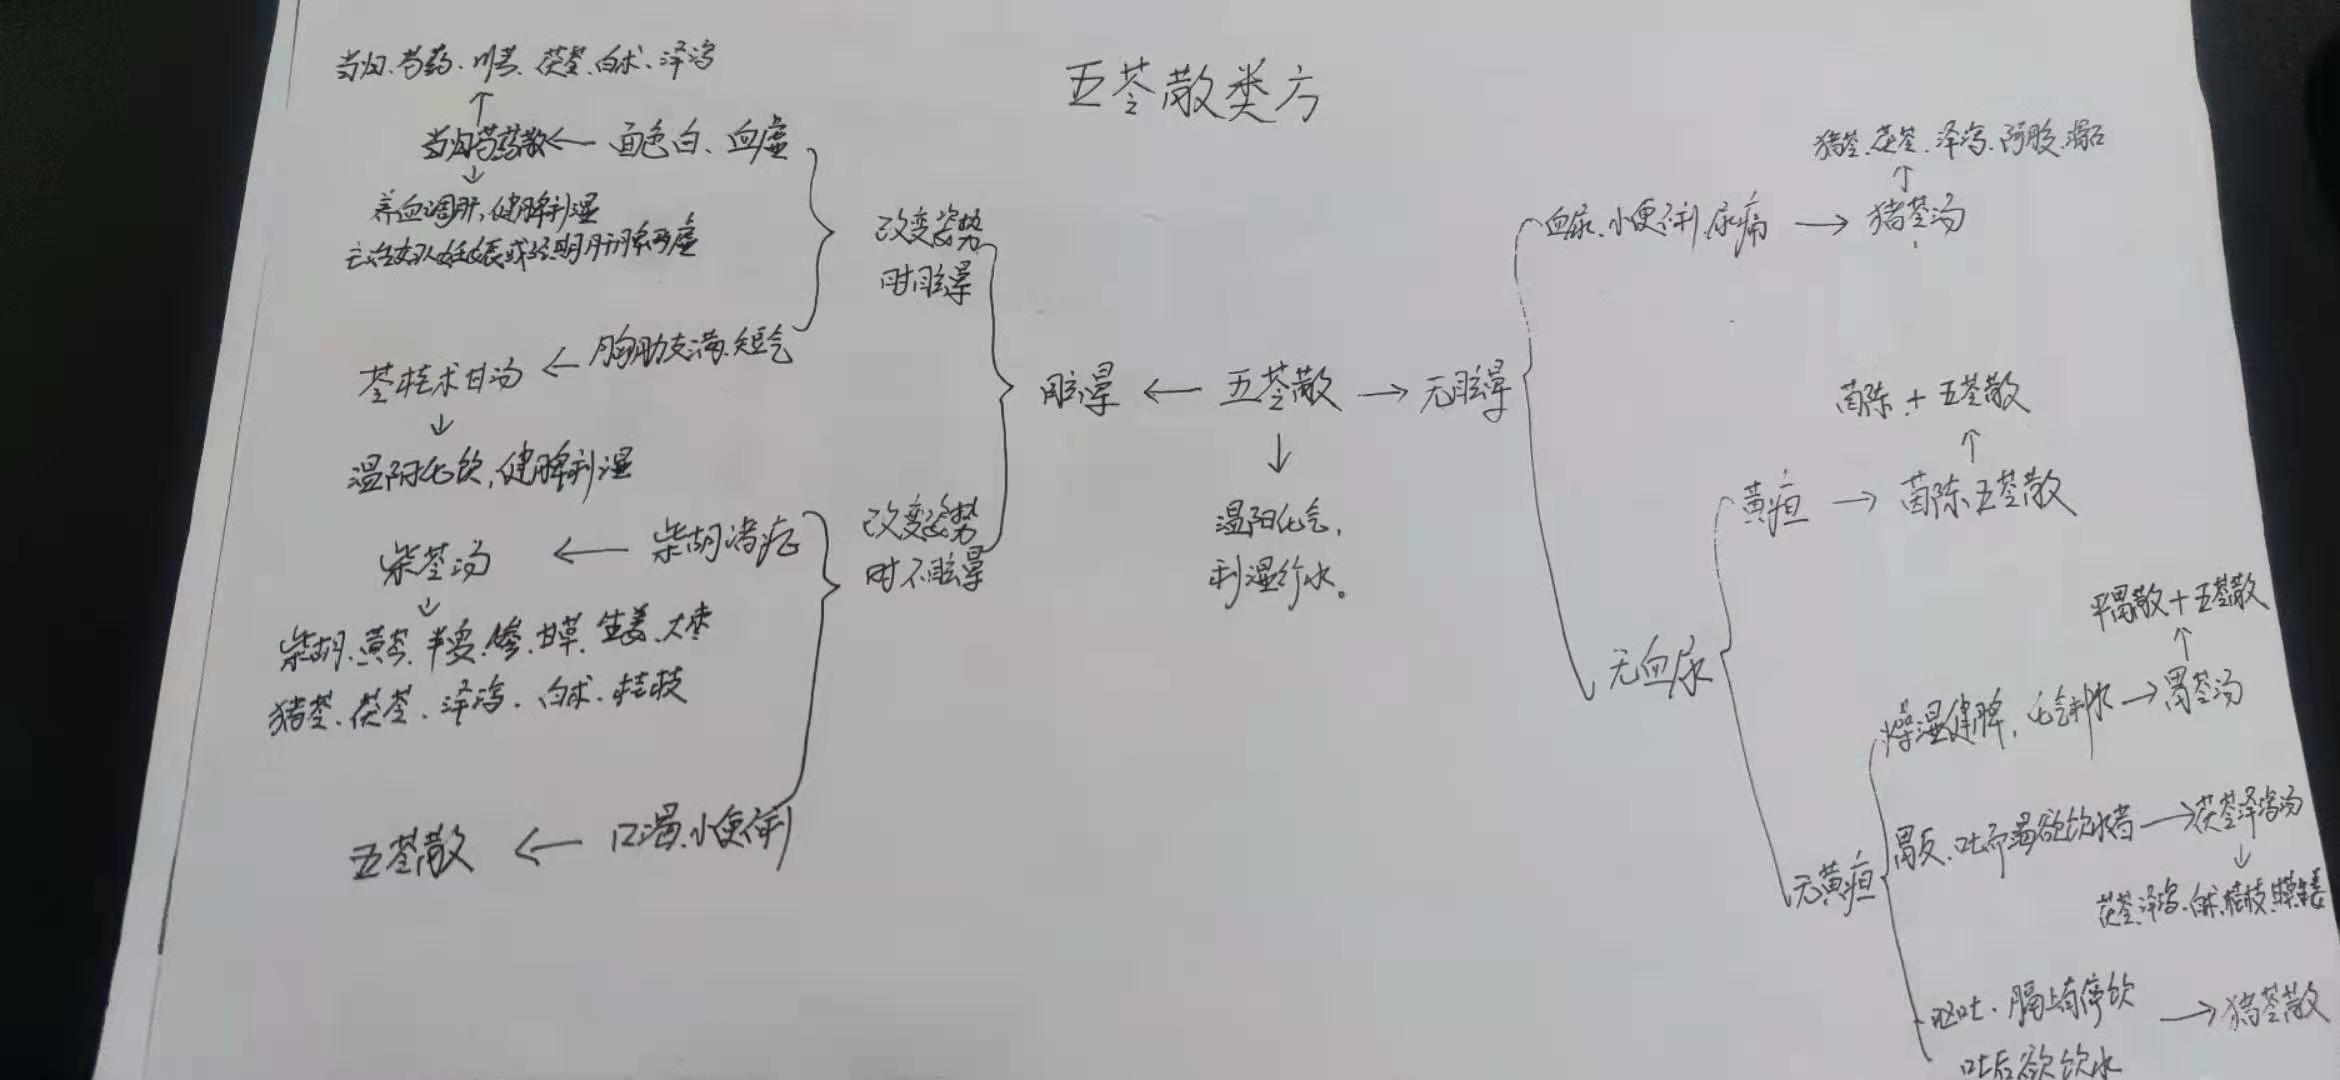 五苓散类方
当归、芍药、川芎、茯苓、白术、泽泻
当归芍药散 ← 面色白、血虚
养血调肝,健脾利湿
主治妇人妊娠或经期肝脾两虚
改变姿势
时眩晕
苓桂术甘汤 ← 胸胁支满、短气
温阳化饮,健脾利湿
柴苓汤 ← 柴胡诸症
改变姿势
时不眩晕
柴胡、黄芩、半夏、参、甘草、生姜、大枣
猪苓、茯苓、泽泻、白术、桂枝
五苓散 ← 口渴、小便不利
眩晕 ← 五苓散 → 无眩晕
温阳化气,
利湿行水。
猪苓、茯苓、泽泻、阿胶、滑石
血尿、小便不利、尿痛 → 猪苓汤
无血尿
茵陈 + 五苓散
黄疸 → 茵陈五苓散
无黄疸
平胃散 + 五苓散
燥湿健脾,化气利水 → 胃苓汤
胃反、吐而渴欲饮水者 → 茯苓泽泻汤
茯苓、泽泻、白术、桂枝、甘草、生姜
呕吐、膈上有停饮 → 猪苓散
吐后欲饮水